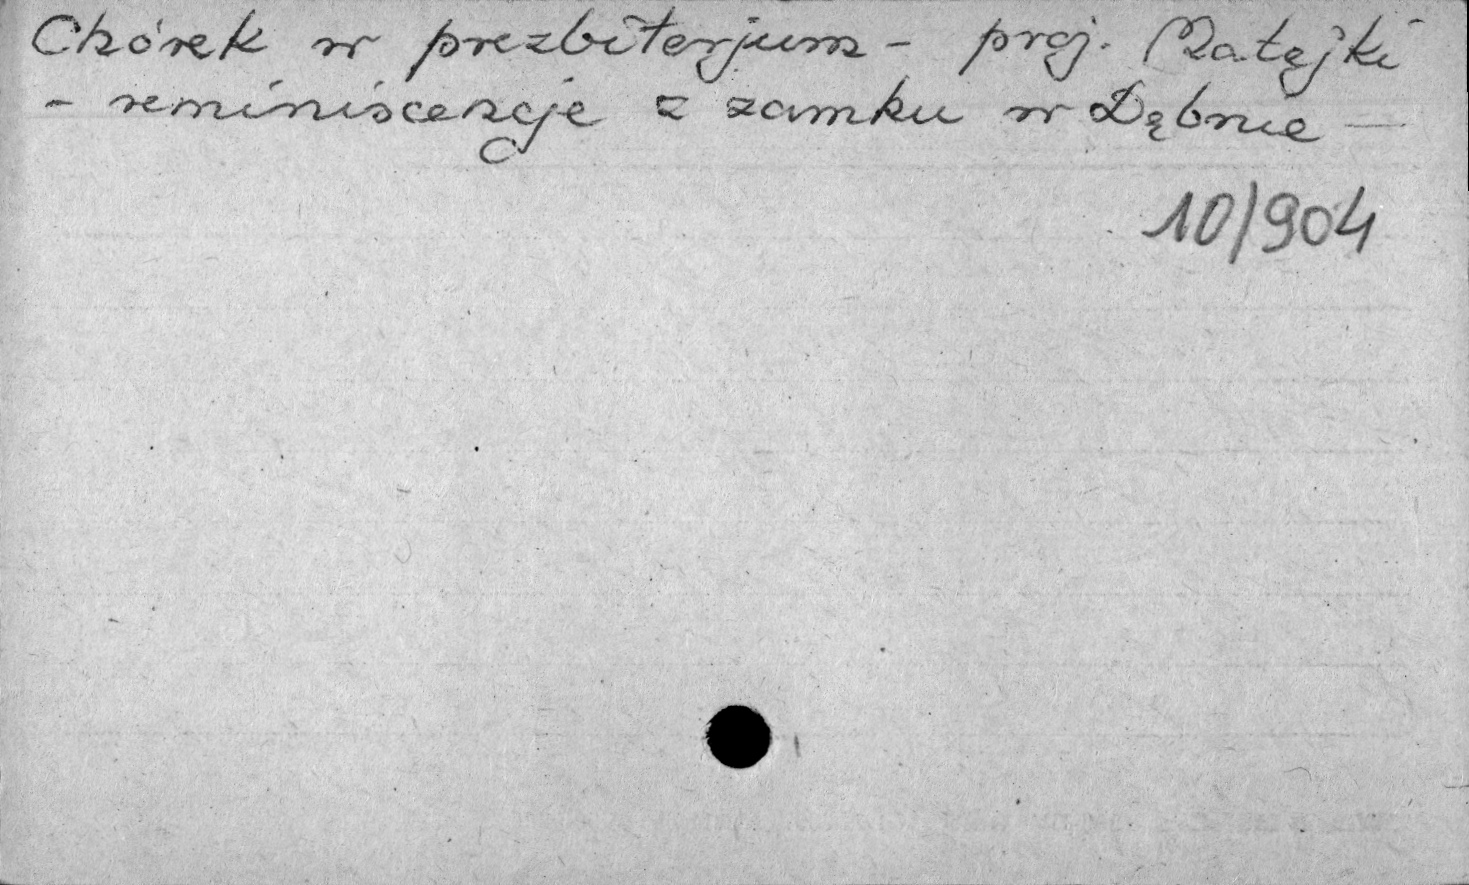 Chórek w prezbiterjum - proj. Matejki
- reminiscencje z zamku w Dębnie —
10/904